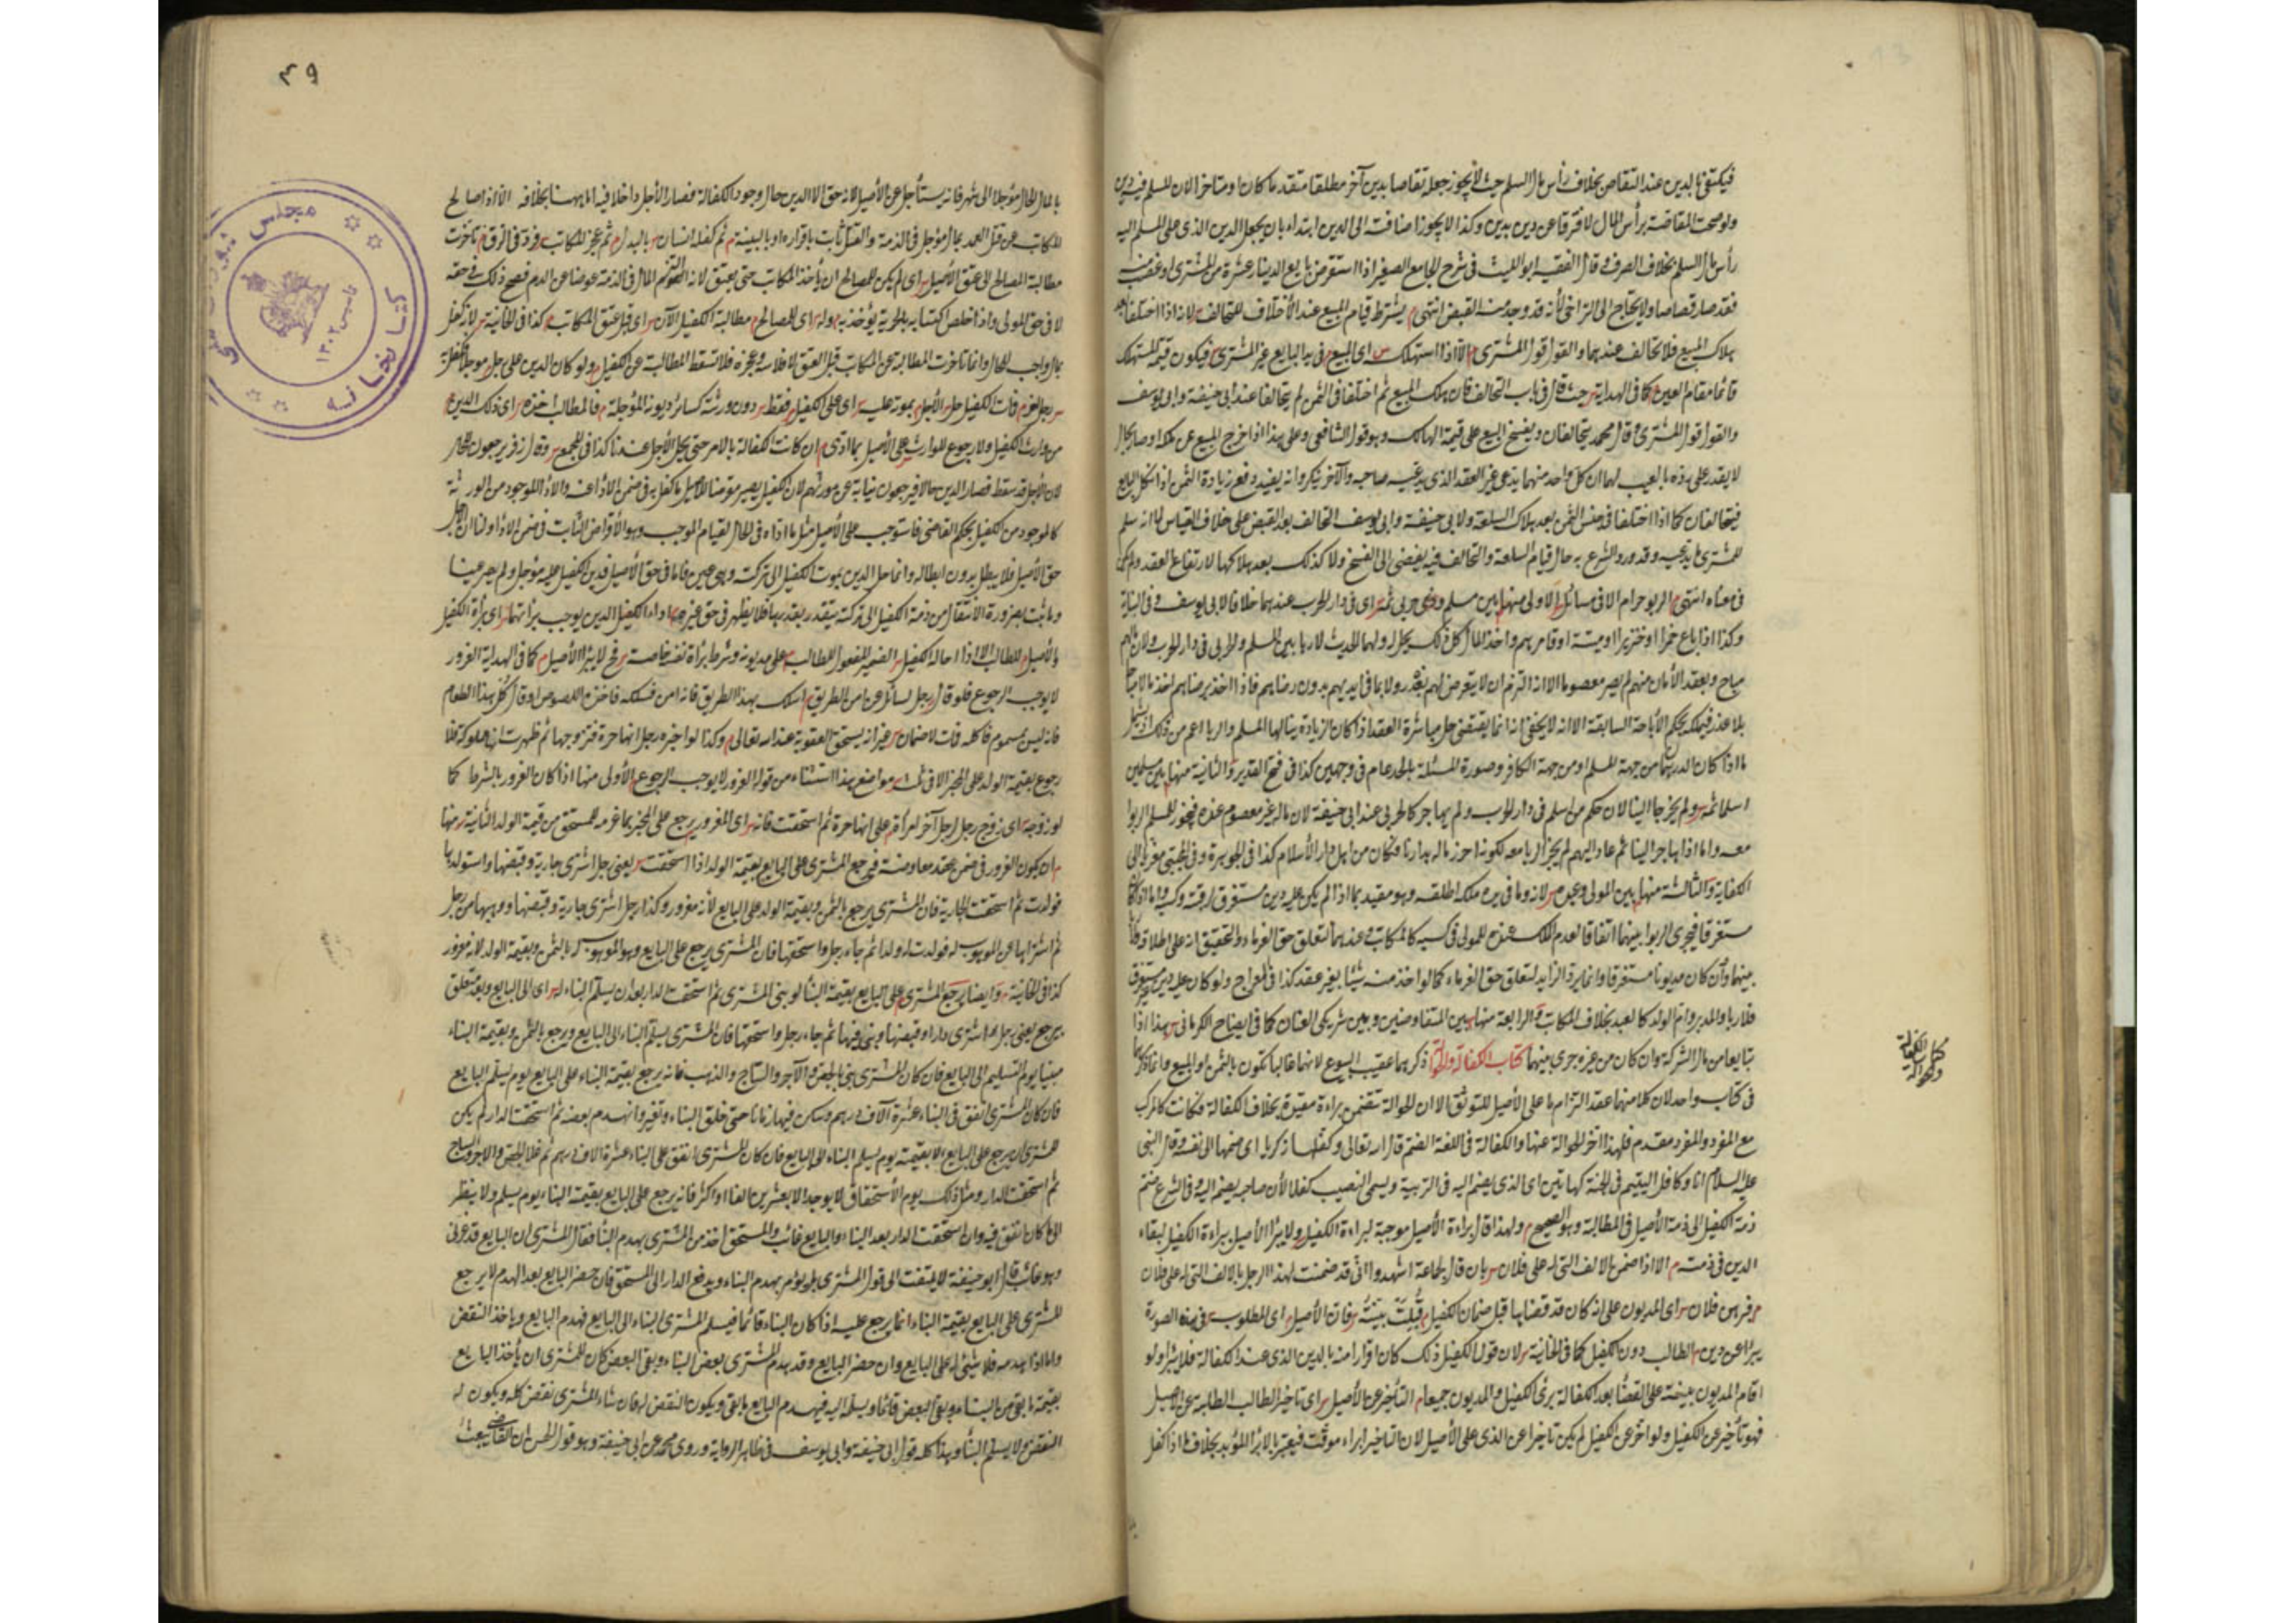 فيكتفى بالدين عند التقاص بخلاف رأس مال السلم حيث لا يجوز جعله تقاصا بدين آخر مطلقا متقدما كان او متاخرا لان المسلم فيه دين
ولو صحت المقاصة برأس المال لافترقا عن دين بدين وكذا لا يجوز اضافته الى الدين ابتداء بان يجعل الدين الذى على المسلم اليه
رأس مال السلم بخلاف الصرف وقال الفقيه ابو الليث فى شرح الجامع الصغير اذا استقرض بايع الدينار عشرة من المشترى او غصب
فقد صار قصاصا ولا يحتاج الى التراضى لأنه قد وجد منه القبض انتهى يشترط قيام المبيع عند الأختلاف للتحالف لانه اذا اختلفا بعد
هلاك المبيع فلا تحالف عندهما والقول قول المشترى الا اذا استهلك اى المبيع فى يد البايع غير المشترى فيكون قيمة المستهلك
قائما مقام العين كما فى الهداية حيث قال فى باب التحالف فان هلك المبيع ثم اختلفا فى الثمن لم يتحالفا عند ابى حنيفة وابى يوسف
والقول قول المشترى وقال محمد يتحالفان ويفسخ البيع على قيمة الهالك وهو قول الشافعى وعلى هذا اذا خرج المبيع عن ملكه او صار بحال
لا يقدر على رده بالعيب لهما ان كل واحد منهما يدعى غير العقد الذى يدعيه صاحبه والآخر ينكره وانه يفيد دفع زيادة الثمن اذا نكل البايع
فيتحالفان كما اذا اختلفا فى جنس الثمن بعد هلاك السلعة ولابى حنيفة وابى يوسف ان التحالف بعد القبض على خلاف القياس لما انه سلم
للمشترى ما يدعيه وقد ورد الشرع به حال قيام السلعة والتحالف فيه يفضى الى الفسخ ولا كذلك بعد هلاكها لارتفاع العقد ولم يكن
فى معناه انتهى الربو حرام الا فى مسائل الاولى منها بين مسلم وحربى ثمه اى فى دار الحرب عندهما خلافا لابى يوسف وفى البناية
وكذا اذا باع خمرا او خنزيرا او ميتة او قامرهم واخذ المال كل ذلك يحل له ولهما الحديث لا ربا بين المسلم والحربى فى دار الحرب ولان مالهم
مباح وبعقد الأمان منهم لم يصر معصوما الا انه التزم ان لا يتعرض لهم بغدر ولا بما فى ايديهم بدون رضاهم فاذا اخذ برضاهم اخذ مالا مباحا
بلا عذر فيملكه بحكم الأباحة السابقة الا انه لا يخفى انه انما يقتضى حل مباشرة العقد اذا كان الزيادة ينالها المسلم والربا اعم من ذلك
ما اذا كان الدرهمان من جهة المسلم او من جهة الكافر وصورة المسئلة بالحل عام فى وجهين كذا فى فتح القدير والثانية منها بين مسلمين
اسلما ثمه ولم يخرجا الينا لان حكم من اسلم فى دار الحرب ولم يهاجر كالحربى عند ابى حنيفة لان ماله غير معصوم عنده فيجوز للمسلم الربوا
معه واما اذا هاجر الينا ثم عاد اليهم لم يجز الربا معه لكونه احرز ماله بدارنا فكان من اهل دار الأسلام كذا فى الجوهرة وفى المجتبى معزيا الى
الكفاية والثالثة منها بين المولى وعبده لانه وما فى يده ملكه اطلقه وهو مقيد بما اذا لم يكن عليه دين مستغرق لرقبته وكسبه واما اذا كان
مستغرقا فيجرى الربوا بينهما اتفاقا لعدم الملك عنده للمولى فى كسبه كالمكاتب وعندهما لتعلق حق الغرماء والتحقيق انه على اطلاقه
بينهما وان كان مديونا مستغرقا وانما يرد الزايد لتعلق حق الغرماء كما لو اخذ منه شيئا بغير عقد كذا فى المعراج ولو كان عليه دين مستغرق
فلا ربا والمدبر وام الولد كالعبد بخلاف المكاتب والرابعة منها بين المتفاوضين وبين شريكى العنان كما فى ايضاح الكرمانى هذا اذا
تبايعا من مال الشركة وان كان من غيره جرى بينهما كتاب الكفالة والحوالة ذكرهما عقيب البيوع لانهما غالبا تكون بالثمن او المبيع وانما ذكرهما
فى كتاب واحد لان كلا منهما عقد التزام ما على الأصيل للتوثق الا ان الحوالة تتضمن براءة مقيدة بخلاف الكفالة فكانت كالمركب
مع المفرد والمفرد مقدم فلهذا اخر الحوالة عنها والكفالة فى اللغة الضم قال الله تعالى وكفلها زكريا اى ضمها الى نفسه وقال النبى
عليه السلام انا وكافل اليتيم فى الجنة كهاتين اى الذى يضم اليه فى التربية ويسمى النصيب كفلا لأن صاحبه يضم اليه وفى الشرع ضم
ذمة الكفيل الى ذمة الأصيل فى المطالبة وهو الصحيح ولهذا قال براءة الأصيل موجبة لبراءة الكفيل ولا يبرأ الأصيل ببراءة الكفيل لبقاء
الدين فى ذمته الا اذا ضمن بالالف التى له على فلان بان قال لجماعة اشهدوا انى قد ضمنت لهذا الرجل بالالف التى له على فلان
فبرهن فلان اى المديون على انه كان قد قضاها قبل ضمان الكفيل قبلت بينته فان الأصيل اى المطلوب فى هذه الصورة
يبرأ عن دين الطالب دون الكفيل كما فى الخانية لان قول الكفيل ذلك كان اقرارا منه بالدين الذى عند الكفالة فلا يبرأ ولو
اقام المديون بينة على القضاء بعد الكفالة برئ الكفيل والمديون جميعا التأخير عن الأصيل اى تاخير الطالب المطالبة عن الاصيل
فهو تأخير عن الكفيل ولو اخر عن الكفيل لم يكن تاخيرا عن الذى على الأصيل لان التاخير ابراء موقت فيعتبر بالابراء المؤبد بخلاف ما اذا كفل
كتاب الكفالة والحوالة
٤٩
بالمال الحال مؤجلا الى شهر فانه يستأجل عن الأصيل لانه حق الا الدين حال وجود الكفالة فصار الأجل داخلا فيه اما ههنا بخلافه الا اذا صالح
المكاتب عن قتل العمد بمال مؤجل فى الذمة والقتل ثابت باقراره او بالبينة ثم كفله انسان بالبدل ثم عجز المكاتب فرد فى الرق تأخرت
مطالبة المصالح الى عتق الأصيل اى لم يكن للمصالح ان يأخذ المكاتب حتى يعتق لانه التزم المال فى الذمة عوضا عن الدم فصح ذلك فى حقه
لا فى حق المولى واذا خلص اكتسابه بالحرية يؤخذ به وله اى للمصالح مطالبة الكفيل الآن اى قبل عتق المكاتب كذا فى الخانية لانه كفل
بمال واجب للحال وانما تاخرت المطالبة عن المكاتب قبل العتق لافلاسه وعجزه فلا تسقط المطالبة عن الكفيل ولو كان الدين على رجل مؤجلا فكفله
رجل آخر فمات الكفيل حل الأجل بموته عليه اى على الكفيل فقط دون ورثته كسائر ديونه المؤجلة فللطالب اخذه اى ذلك الدين
من وارث الكفيل ولا رجوع للوارث على الأصيل بما ادى ان كانت الكفالة بالامر حتى يحل الأجل عندنا كذا فى المجمع وقال زفر يرجعون للحال
لان الأجل قد سقط فصار الدين حالا فيرجعون نيابة عن مورثهم لان الكفيل يصير مقرضا للأصيل ما كفل به فى ضمن الأداء عنه والاداء الموجود من الورثة
كالموجود من الكفيل بحكم القاضى فاستوجب على الأصيل مثل ما اداه فى الحال لقيام الموجب وهو الأقراض الثابت فى ضمن الاداء ولنا ان الأجل
حق الأصيل فلا يبطل بدون ابطاله وانما حل الدين بموت الكفيل الى تركته وهى عين فاما فى حق الأصيل فدين الكفيل عليه مؤجل ولم يصر عينا
وما ثبت بضرورة الانتقال من ذمة الكفيل الى تركته يتقدر بقدرها فلا يظهر فى حق غيره اداء الكفيل الدين يوجب براتهما اى براة الكفيل
والأصيل للطالب الا اذا احاله الكفيل الضمير المفعول للطالب على مديونه وشرط براة نفسه خاصة فح لا يبرأ الأصيل كما فى الهداية الغرور
لا يوجب الرجوع فلو قال رجل لسائل عن امن الطريق اسلك هذا الطريق فانه امن فسلكه فاخذه اللصوص او قال كل هذا الطعام
فانه ليس بمسموم فاكله فمات لا ضمان غير انه يستحق العقوبة عند الله تعالى وكذا لو اخبره رجل انها حرة فتزوجها ثم ظهرت انها مملوكة فلا
رجوع بقيمة الولد على المخبر الا فى ثلث مواضع هذا استثناء من قوله الغرور لا يوجب الرجوع الأولى منها اذا كان الغرور بالشرط كما
لو زوجه اى زوج رجل لرجل آخر امراة على انها حرة ثم استحقت فانه اى المغرور يرجع على المخبر بما غرمه للمستحق من قيمة الولد الثانية منها
ان يكون الغرور فى ضمن عقد معاوضة فيرجع المشترى على البايع بقيمة الولد اذا استحقت يعنى رجل اشترى جارية وقبضها واستولدها
فولدت ثم استحقت الجارية فان المشترى يرجع بالثمن وبقيمة الولد على البايع لأنه مغرور وكذا رجل اشترى جارية وقبضها ووهبها من رجل
ثم اشتراها من الموهوب له فولدت له ولدا ثم جاء رجل واستحقها فان المشترى يرجع على البايع وهو الموهوب له بالثمن وبقيمة الولد لانه مغرور
كذا فى الخانية وايضا يرجع المشترى على البايع بقيمة البناء لو بنى المشترى ثم استحقت الدار بعد ان يسلم البناء له اى الى البايع وبعد متعلق
بيرجع يعنى رجل اشترى دارا وقبضها وبنى فيها ثم جاء رجل واستحقها فان المشترى يسلم البناء الى البايع ويرجع بالثمن وبقيمة البناء
مبنيا يوم التسليم الى البايع فان كان المشترى بنى بالجص والآجر والساج والذهب فانه يرجع بقيمة البناء على البايع يوم يسلم البايع
فان كان المشترى انفق فى البناء عشرة آلاف درهم وسكن فيها زمانا حتى خلق البناء وتغير وانهدم بعضه ثم استحقت الدار لم يكن
للمشترى ان يرجع على البايع الا بقيمته يوم يسلم البناء الى البايع فان كان المشترى انفق على البناء عشرة الاف درهم ثم غلا الجص والاجر والساج
ثم استحقت الدار ومثل ذلك يوم الأستحقاق لا يوجد الا بعشرين الفا او اكثر فانه يرجع على البايع بقيمة البناء يوم يسلم ولا ينظر
الى ما كان انفق فيه وان استحقت الدار بعد البناء والبايع غائب والمستحق اخذ من المشترى بهدم البناء فقال المشترى ان البايع قد غرنى
وهو غائب قال ابو حنيفة لا يلتفت الى قول المشترى بل يؤمر بهدم البناء ويدفع الدار الى المستحق فان حضر البايع بعد الهدم لا يرجع
المشترى على البايع بقيمة البناء انما يرجع عليه اذا كان البناء قائما فيسلم المشترى البناء الى البايع فيهدم البايع وياخذ النقض
واما اذا هدمه فلا شئ له على البايع وان حضر البايع وقد هدم المشترى بعض البناء وبقى البعض كان للمشترى ان ياخذ البايع
بقيمة ما بقى من البناء ويبقى البعض قائما ويسلمه اليه فيهدم البايع ما بقى ويكون النقض له فان شاء المشترى نقض كله ويكون له
النقض ولا يسلم البناء وهذا كله قول ابى حنيفة وابى يوسف فى ظاهر الرواية وروى محمد عن ابى حنيفة وهو قول الحسن ان القاضى يبعث
كتابخانه مجلس شورای ملی
تاسیس ۱۳۰۲